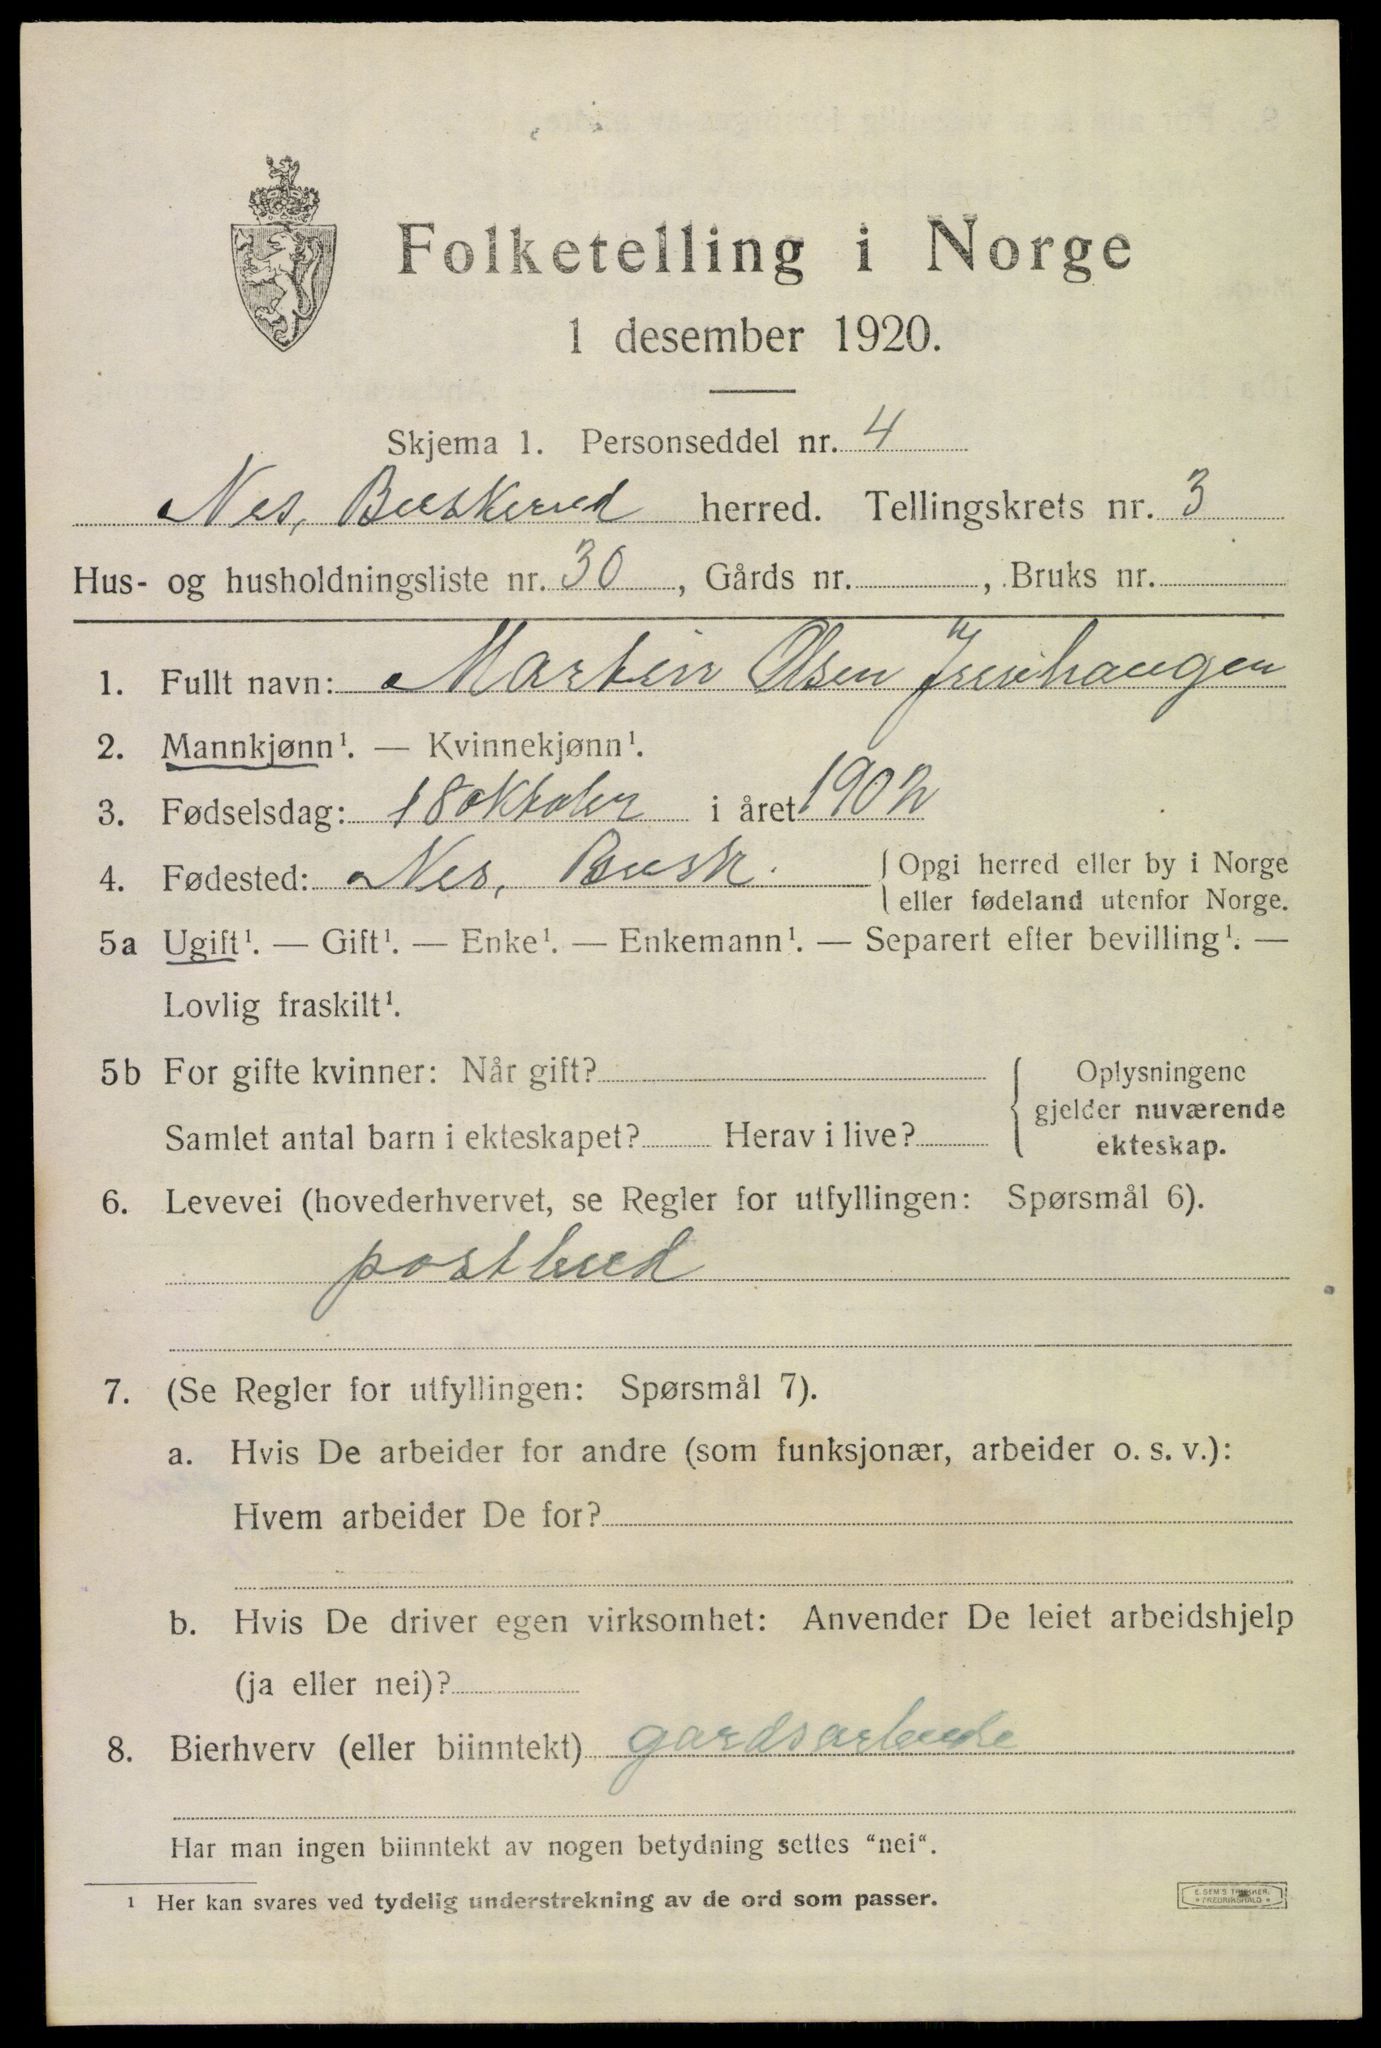 Folketelling i Norge
1 desember 1920.
Skjema 1. Personseddel nr. 4
Nes, Buskerud herred. Tellingskrets nr. 3
Hus- og husholdningsliste nr. 30, Gårds nr. , Bruks nr.
1. Fullt navn: Martin Olsen
2. Mannkjønn¹. — Kvinnekjønn¹.
3. Fødselsdag: 18 oktober i året 1902
4. Fødested: Nes, Busk. { Opgi herred eller by i Norge
eller fødeland utenfor Norge.
5a Ugift¹. — Gift¹. — Enke¹. — Enkemann¹. — Separert efter bevilling¹. —
Lovlig fraskilt¹.
5b For gifte kvinner: Når gift? { Oplysningene
gjelder nuværende
Samlet antal barn i ekteskapet? Herav i live?
ekteskap.
6. Levevei (hovederhvervet, se Regler for utfyllingen: Spørsmål 6).
postbud
7. (Se Regler for utfyllingen: Spørsmål 7).
a. Hvis De arbeider for andre (som funksjonær, arbeider o. s. v.):
Hvem arbeider De for?
b. Hvis De driver egen virksomhet: Anvender De leiet arbeidshjelp
(ja eller nei)?
8. Bierhverv (eller biinntekt) gardsarbeide
Har man ingen biinntekt av nogen betydning settes “nei“.
¹ Her kan svares ved tydelig understrekning av de ord som passer.
E. SEM'S TRYKKER.
FREDRIKSHALD